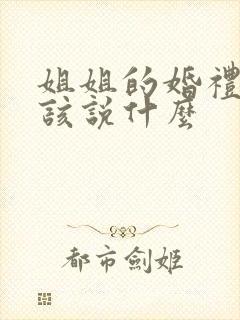 姐姐的婚禮
該說什麼
都市劍姬